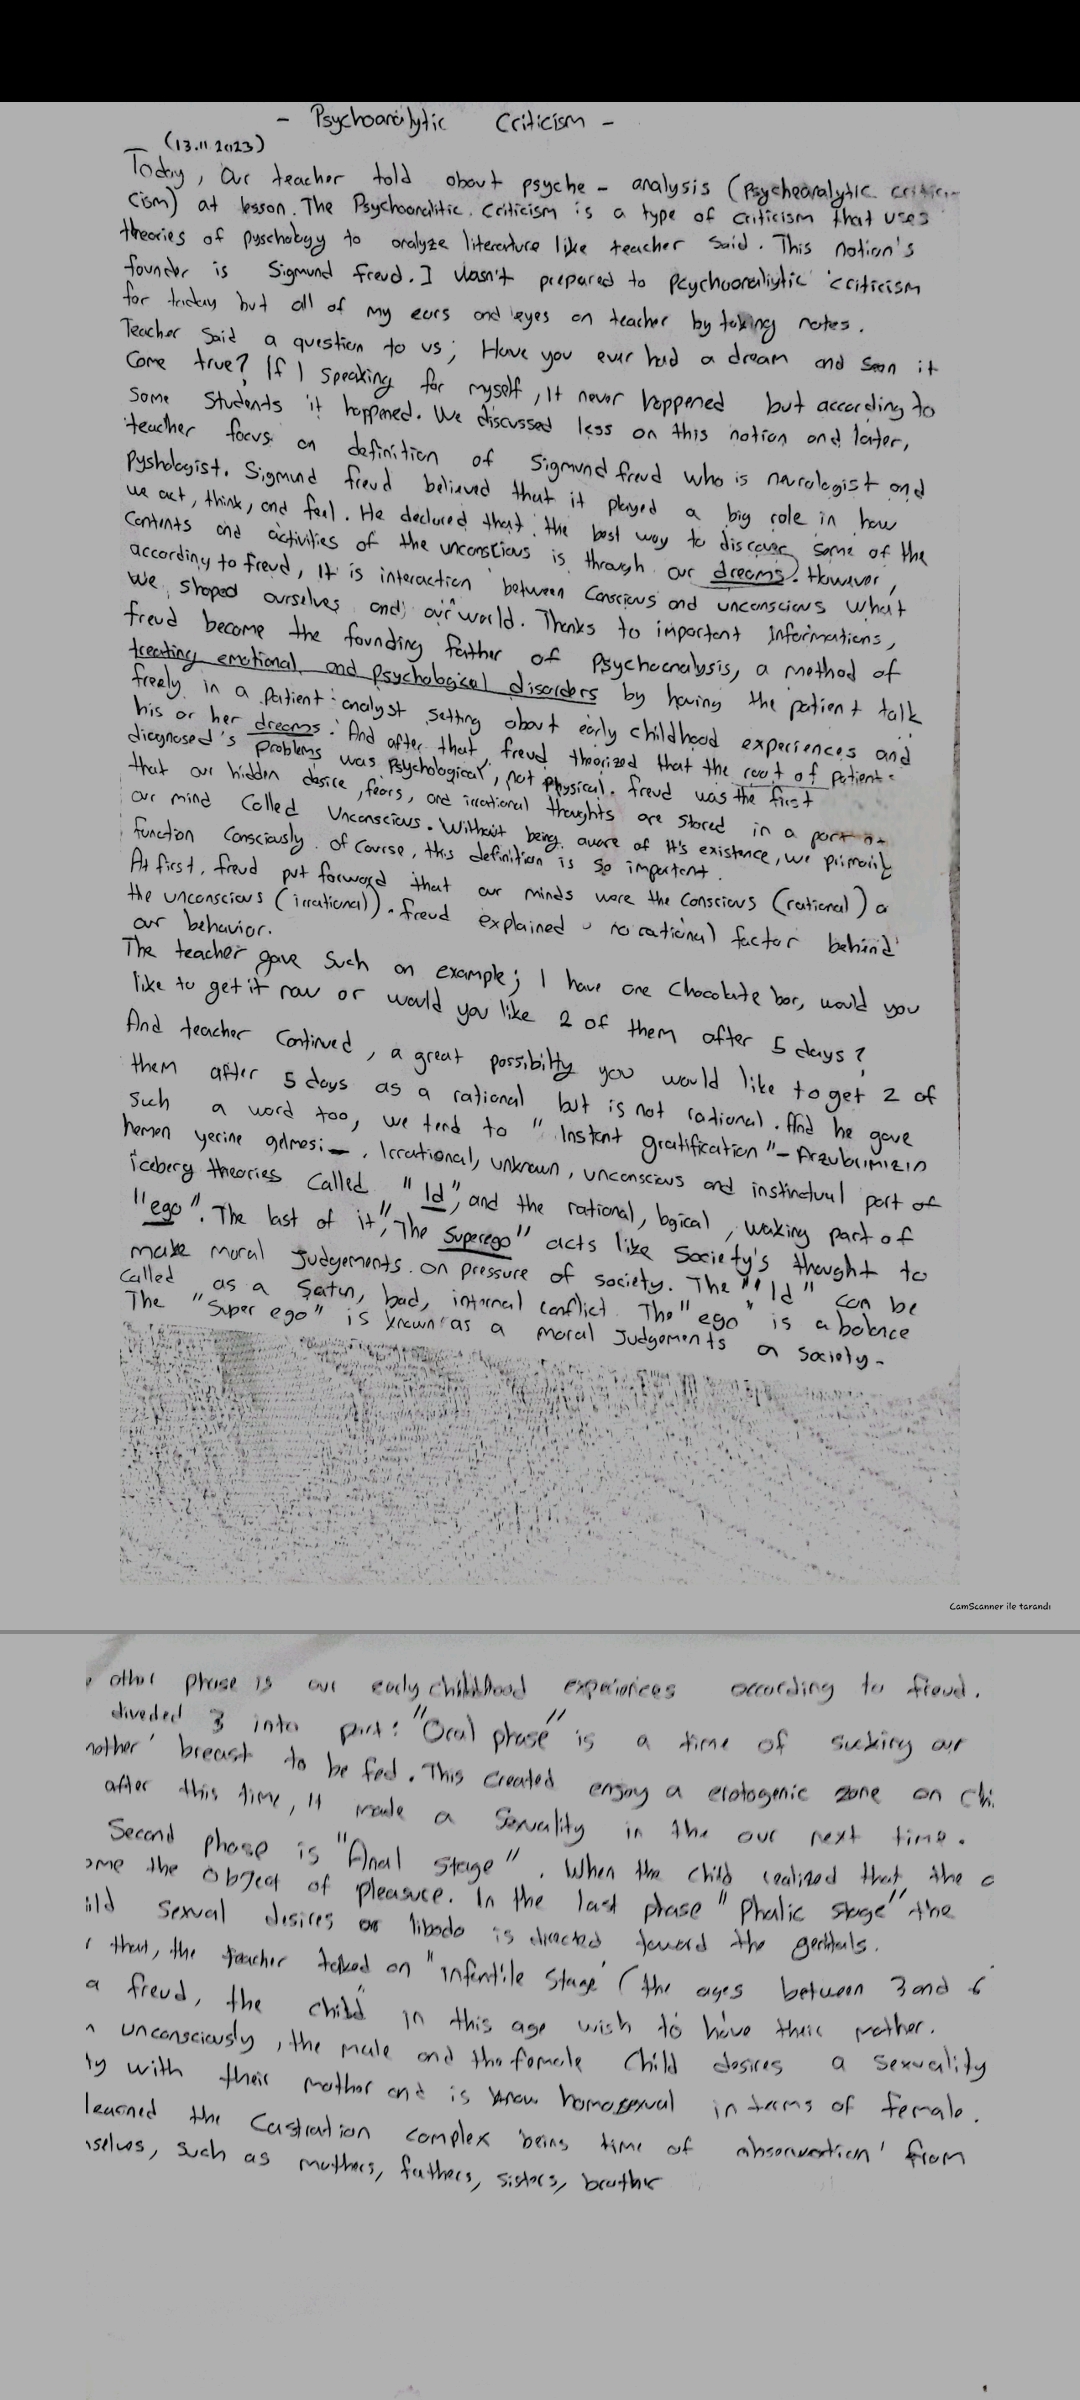 - Psychoanalytic Criticism -
(13.11.2023)
Today, our teacher told about psyche - analysis (Psychearalytic critici-
cism) at lesson. The Psychoanalitic criticism is a type of criticism that uses
theories of pyschology to analyze literature like teacher said. This notion's
founder is Sigmund freud. I wasn't prepared to psychoanaliytic criticism
for today but all of my ears and eyes on teacher by taking notes.
Teacher said a question to us; Have you ever had a dream and seen it
come true? If I speaking for myself, It never happened but according to
some students it happened. We discussed less on this notion and later,
teacher focus on definition of Sigmund freud who is neurologist and
pyshologist. Sigmund freud believed that it played a big role in how
we act, think, and feel. He declared that the best way to discover some of the
contents and activities of the unconscious is through our dreams. However,
according to freud, It is interaction between Conscious and unconscious what
we shaped ourselves and our world. Thanks to important informations,
freud become the founding father of Psychoanalysis, a method of
treating emotional and psychological disorders by having the patient talk
freely in a patient-analyst setting about early childhood experiences and
his or her dreams. And after that freud theorized that the root of patient
diagnosed's problems was psychological, not physical. freud was the first
that our hidden desire, fears, and irrational thoughts are stored in a part of
our mind called Unconscious. Without being aware of it's existence, we primarily
function consciously. Of course, this definition is so important.
At first, freud put forward that our minds were the conscious (rational) a
the unconscious (irrational). freud explained no rational factor behind
our behavior.
The teacher gave such an example; I have one chocolate bar, would you
like to get it now or would you like 2 of them after 5 days?
And teacher continued, a great possibilty you would like to get 2 of
them after 5 days as a rational but is not rational. And he gave
such a word too, we tend to "Instant gratification" - Arzularımızın
hemen yerine gelmesi -. Irrational, unknown, unconscious and instinctual part of
iceberg theories called "Id", and the rational, logical, waking part of
"ego". The last of it, "The Superego" acts like society's thought to
make moral Judgements on pressure of society. The "Id" can be
called as a Satan, bad, internal conflict. The "ego" is a balance
The "Super ego" is known as a moral Judgements a society-
CamScanner ile tarandı
other phase is our early childhood experiences according to freud.
diveded 3 into part: "Oral phase" is a time of sucking our
mother' breast to be fed. This created enjoy a erotogenic zone on chi
after this time, It made a sexuality in the our next time.
Second phase is "Anal stage". When the child realized that the
ome the object of pleasure. In the last phase "Phalic stage" the
ild sexual desires or libodo is directed toward the genitals.
r that, the teacher talked on "infentile stage" (the ages between 3 and 6
a freud, the child in this age wish to have their mother.
unconsciously, the male and the female child desires a sexuality
ly with their mother and is know homosexual in terms of female.
learned the Castration complex being time of observation' from
selves, such as mothers, fathers, sisters, brother